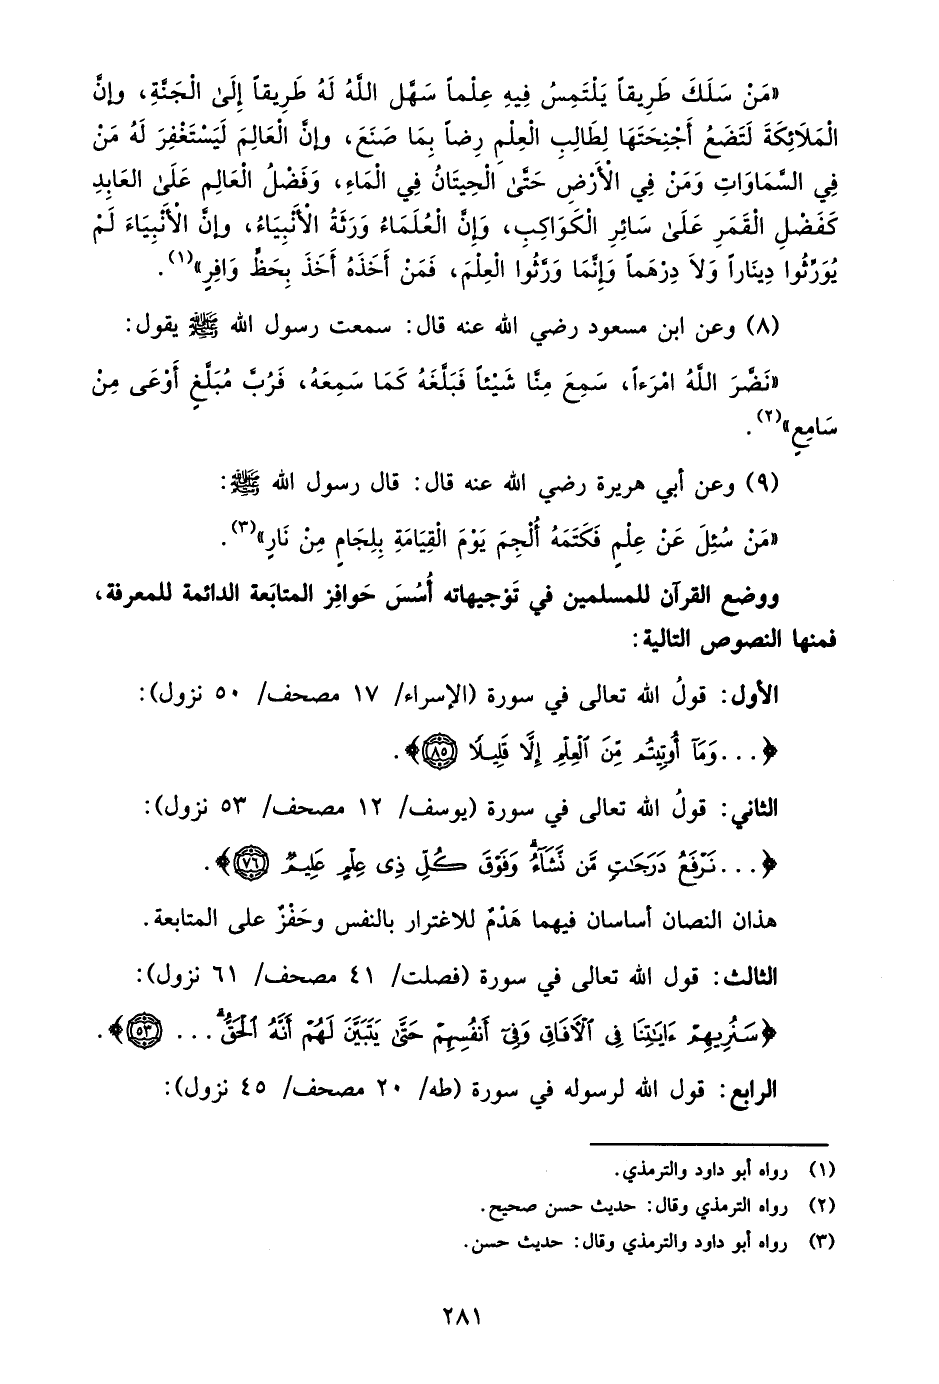 «مَنْ سَلَكَ طَرِيقاً يَلْتَمِسُ فِيهِ عِلْماً سَهَّل اللَّهُ لَهُ طَرِيقاً إِلَىٰ الْجَنَّةِ، وإنَّ
الْمَلَائِكَةَ لَتَضَعُ أَجْنِحَتَهَا لِطَالِبِ الْعِلْمِ رِضاً بِمَا صَنَعَ، وإنَّ الْعَالِمَ لَيَسْتَغْفِرَ لَهُ مَنْ
فِي السَّمَاوَاتِ وَمَنْ فِي الْأَرْضِ حَتَّىٰ الْحِيتَانُ فِي الْمَاءِ، وَفَضْلُ الْعَالِمِ عَلَىٰ العَابِدِ
كَفَضْلِ الْقَمَرِ عَلَىٰ سَائِرِ الْكَوَاكِبِ، وَإِنَّ الْعُلَمَاءُ وَرَثَةُ الْأَنْبِيَاءُ، وإنَّ الْأَنْبِيَاءَ لَمْ
يُوَرِّثُوا دِينَاراً وَلاَ دِرْهَماً وَإِنَّمَا وَرَّثُوا الْعِلْمَ، فَمَنْ أَخَذَهُ أَخَذَ بِحَظٍّ وَافِرٍ»(١).
(٨) وعن ابن مسعود رضي الله عنه قال: سمعت رسول الله ﷺ يقول:
«نَضَّرَ اللَّهُ امْرَءاً، سَمِعَ مِنَّا شَيْئاً فَبَلَّغَهُ كَمَا سَمِعَهُ، فَرُبَّ مُبَلَّغٍ أَوْعَى مِنْ
سَامِعٍ»(٢).
(٩) وعن أبي هريرة رضي الله عنه قال: قال رسول الله ﷺ:
«مَنْ سُئِلَ عَنْ عِلْمٍ فَكَتَمَهُ أُلْجِمَ يَوْمَ الْقِيَامَةِ بِلِجَامٍ مِنْ نَارٍ»(٣).
ووضع القرآن للمسلمين في تَوْجيهاته أُسُسَ حَوافِز المتابَعة الدائمة للمعرفة،
فمنها النصوص التالية:
الأول: قولُ الله تعالى في سورة (الإسراء/ ١٧ مصحف/ ٥٠ نزول):
﴿...وَمَآ أُوتِيتُم مِّنَ ٱلْعِلْمِ إِلَّا قَلِيلًا ٨٥﴾.
الثاني: قولُ الله تعالى في سورة (يوسف/ ١٢ مصحف/ ٥٣ نزول):
﴿...نَرْفَعُ دَرَجَٰتٍ مَّن نَّشَآءُ ۗ وَفَوْقَ كُلِّ ذِى عِلْمٍ عَلِيمٌ ٧٦﴾.
هذان النصان أساسان فيهما هَدْمٌ للاغترار بالنفس وحَفْزٌ على المتابعة.
الثالث: قول الله تعالى في سورة (فصلت/ ٤١ مصحف/ ٦١ نزول):
﴿سَنُرِيهِمْ ءَايَٰتِنَا فِى ٱلْءَافَاقِ وَفِىٓ أَنفُسِهِمْ حَتَّىٰ يَتَبَيَّنَ لَهُمْ أَنَّهُ ٱلْحَقُّ ۗ ... ٥٣﴾.
الرابع: قول الله لرسوله في سورة (طه/ ٢٠ مصحف/ ٤٥ نزول):
(١) رواه أبو داود والترمذي.
(٢) رواه الترمذي وقال: حديث حسن صحيح.
(٣) رواه أبو داود والترمذي وقال: حديث حسن.
٢٨١